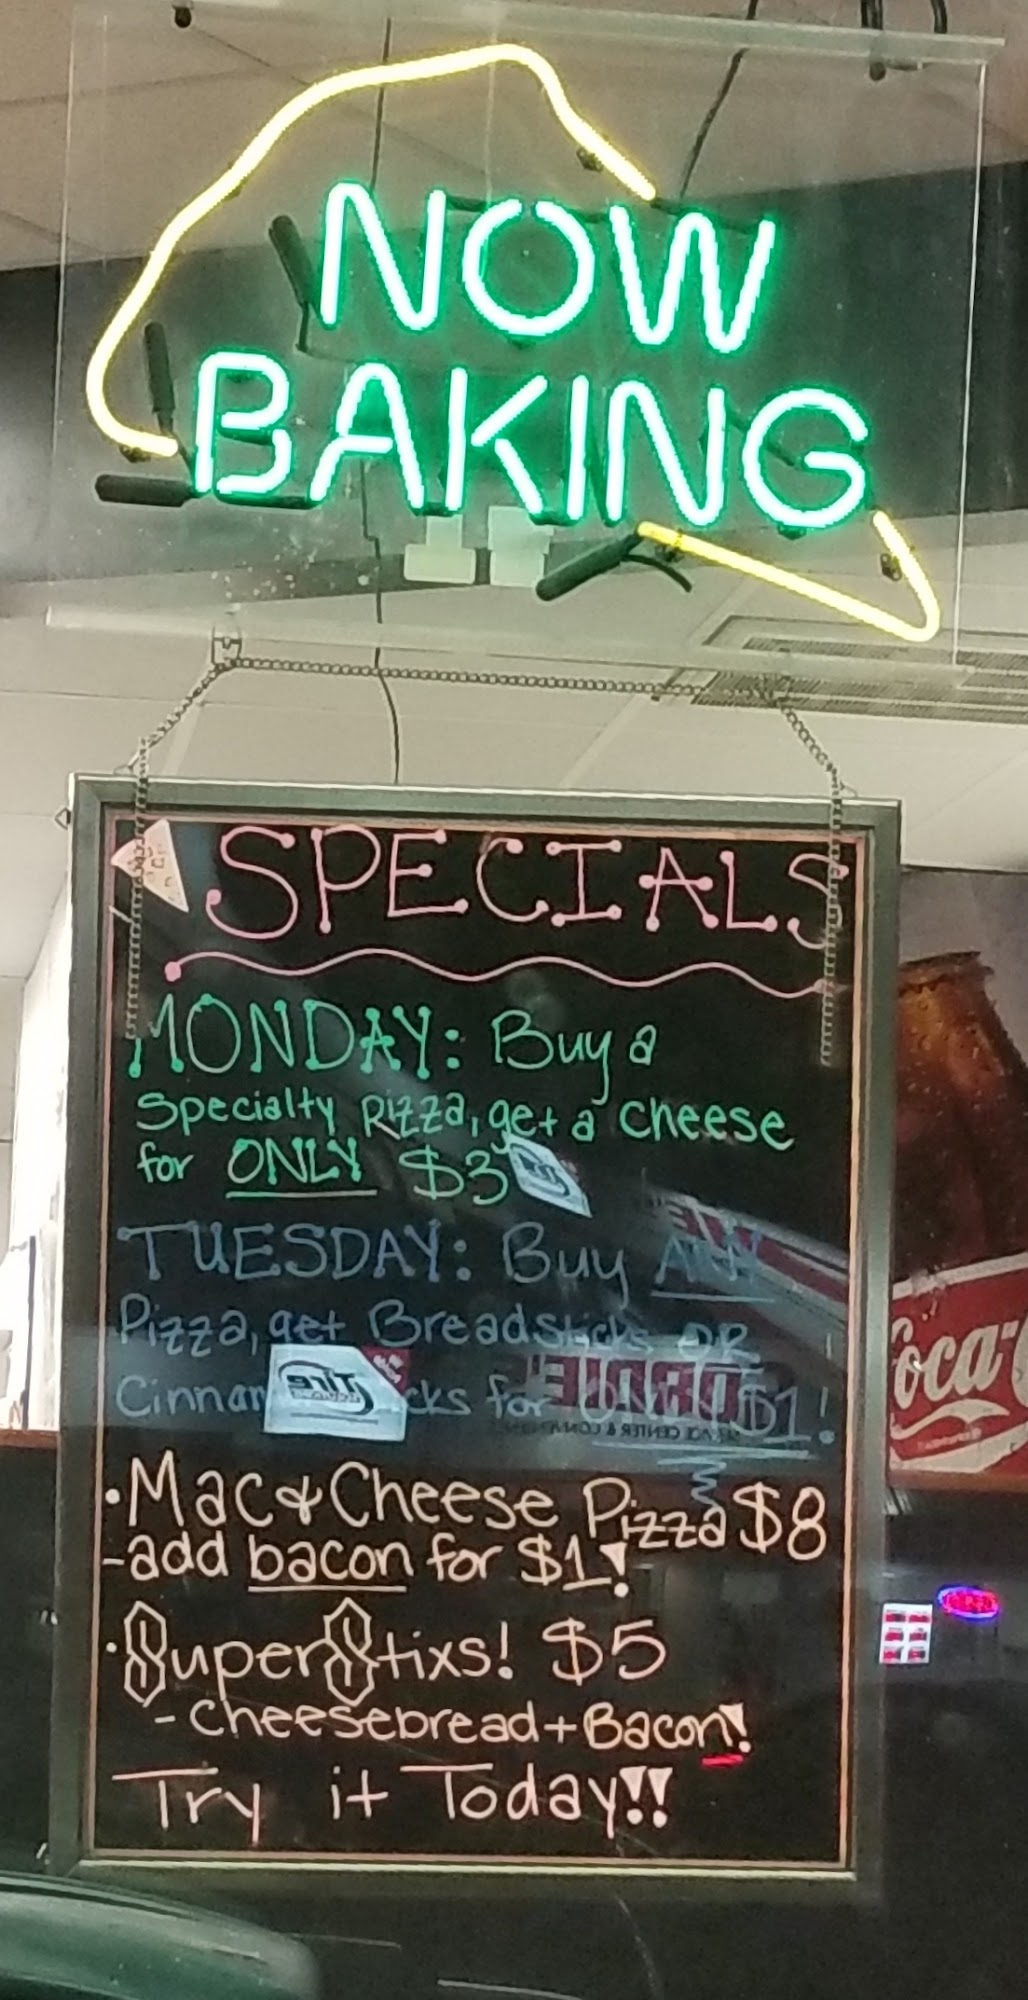 NOW
BAKING
SPECIALS
MONDAY: Buy a
Specialty Pizza, get a cheese
for ONLY $3
TUESDAY: Buy ANY
Pizza, get Breadsticks OR
for ONLY $1!
•Mac & Cheese Pizza $8
-add bacon for $1!
•SuperStixs! $5
-Cheesebread+Bacon!
Try it Today!!
Coca-
Tire